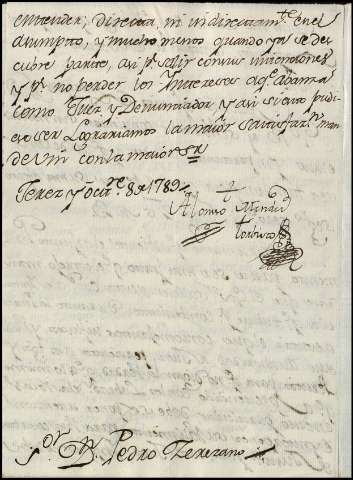 entender, directa, ni indirectamte. en el
asumpto, y mucho menos quando ya se des
cubre parte, asi pr. salir con sus intenciones
y pr. no perder los Intereses a qe. aspama
como Juez y Denunciador y asi si esto pudi
ese ser Lograriamos la maior satisfazn. man
de Vm con la maior
Jerez y octre. 8 de 1789
Alonso Mendez
Sor. Dn. Pedro Zerezano